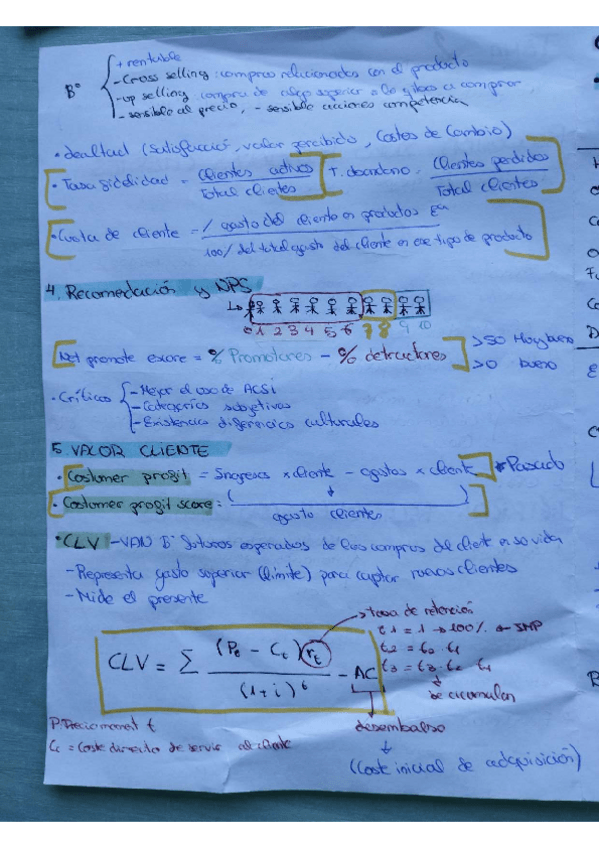 + rentable
Bº
- Cross selling: compras relacionadas con el producto
- up selling compra de algo superior a lo q ibas a comprar
- sensible al precio, - sensible acciones competencia
• Lealtad (Satisfacció, valor percibido, Costes de Cambio)
• Tasa fidelidad = Clientes activos / Total clientes
T. abandono = Clientes perdidos / Total clientes
• Cuota de cliente = gasto del cliente en productos Eª
100% del total gasto del cliente en ese tipo de producto
4. Recomendación y NPS
0 1 2 3 4 5 6 7 8 9 10
Net promote score = % Promotores - % detractores
>50 Muy bueno
>0 bueno
• Críticas
- Mejor el uso de ACSI
- Categorías subjetivas
- Existencia diferencias culturales
5. VALOR CLIENTE
• Costumer profit = Ingresos x cliente - gastos x cliente * Pasado
• Costumer profit score =
gasto clientes
• CLV - VAN Bº futuros esperados de las compras del client en su vida
- Representa gasto superior (límite) para captar nuevos clientes
- Mide el presente
→ tasa de retención
r1 = 1 → 100% ← IMP
r2 = r2 · r1
r3 = r3 · r2 · r1
se acumulan
CLV = Σ (Pt - Ct) rt / (1+i)^t - AC
P: Precio moment t
Ct = Coste directo de servir al cliente
desembolso
(Coste inicial de adquisición)